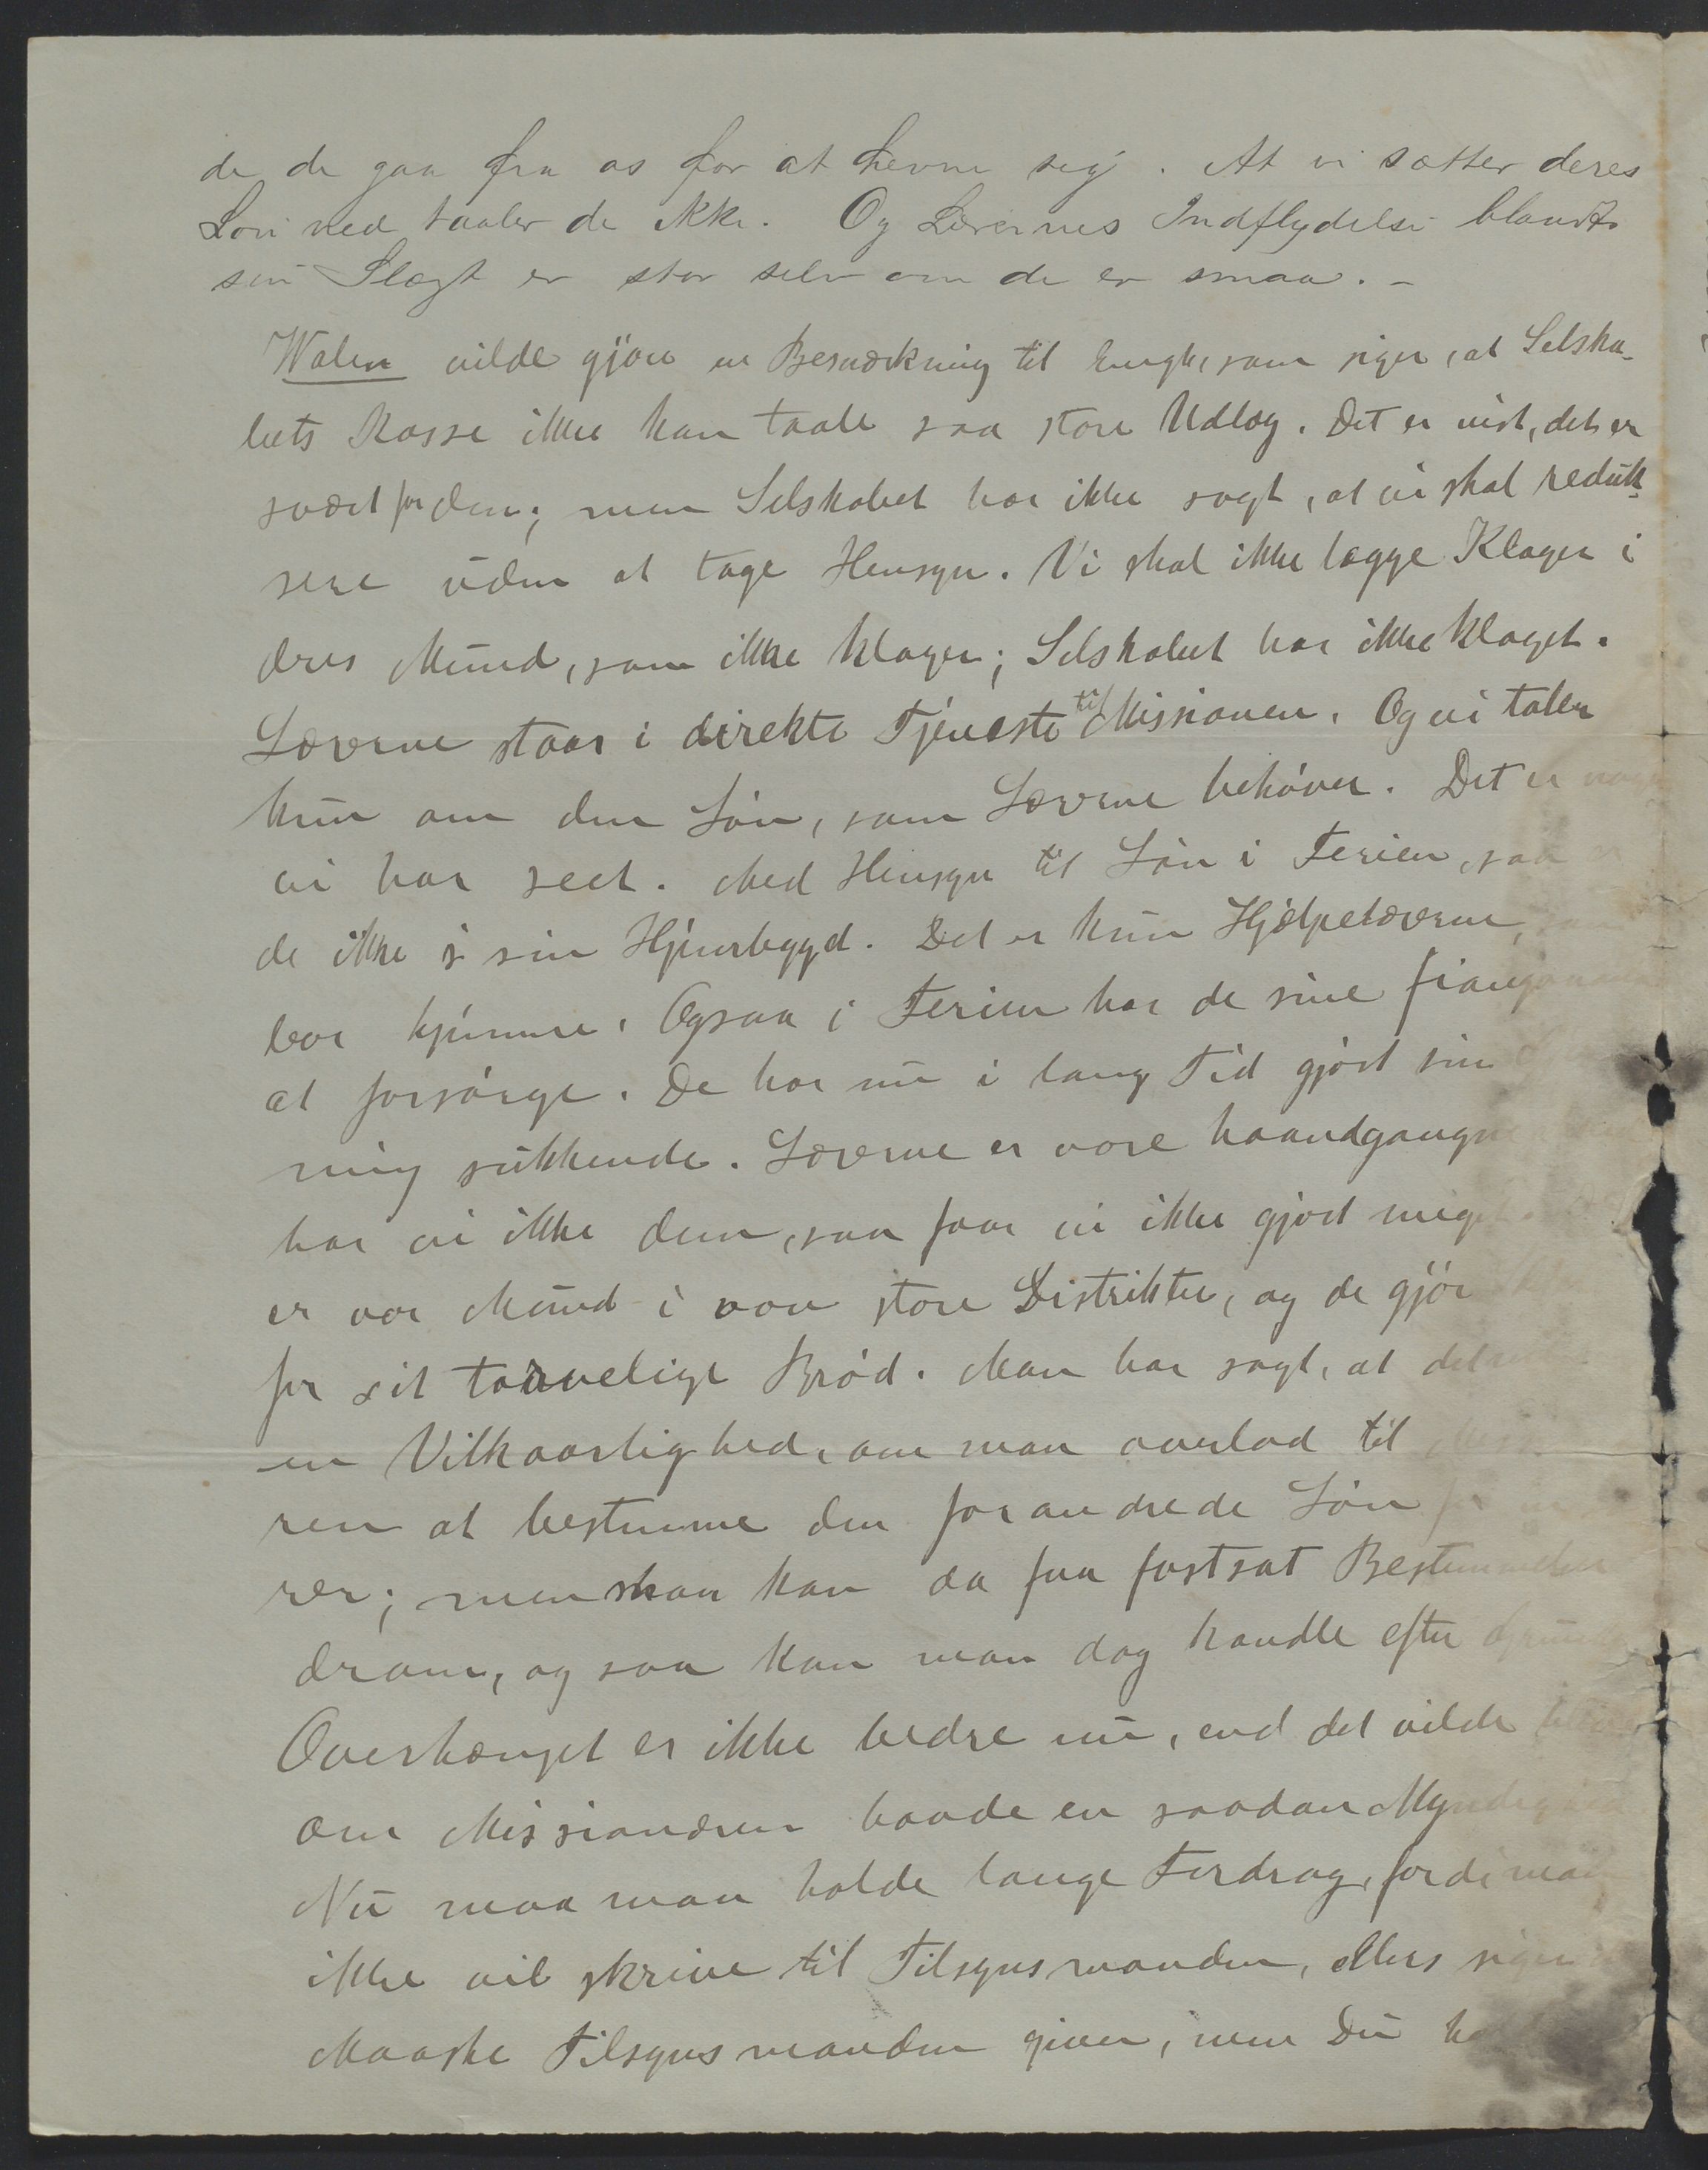 de de gaa fra os for at hevne sig. At vi sætter deres
Løn ned taaler de ikke. Og Lærernes Indflydelse blandt
sin Slægt er stor selv om de er smaa. -
Walen vilde gjøre en Bemærkning til Engh, som siger, at Selska-
bets Kasse ikke kan taale saa store Udlæg. Det er vist, det er
svært for dem; men Selskabet har ikke sagt, at vi skal reduk-
sere uden at tage Hensyn. Vi skal ikke lægge Klager i
deres Mund, som ikke klager; Selskabet har ikke klaget.
Lærerne staar i direkte Tjeneste til Missionen. Og vi taler
kun om den Løn, som Lærerne behøver. Det er
vi har seet. Med Hensyn til Løn i Ferien, saa
de ikke i sin Hjembygd. Det er kun Hjælpelærerne,
bor hjemme. Ogsaa i Ferien har de sine
at forsørge. De har nu i lang Tid gjort sin
ning sukkende. Lærerne er vore haandgangne
har vi ikke dem, saa faar vi ikke gjort meget
er vor Mund i vore store Distrikter, og de gjør
for sit tarvelige Brød. Man har sagt, at det
en Vilkaarlighed, om man overlod til
ren at bestemme den forandrede Løn
rer; men man kan da faa fastsat Bestemmelser
derom, og saa kan man dog handle efter
Overhænget er ikke bedre nu, end det vilde
om Missionæren havde en saadan Myndighed
Nu maa man holde lange Foredrag, fordi man
ikke vil skrive til Tilsynsmanden, ellers siger
Maaske Tilsynsmanden giver, men Du